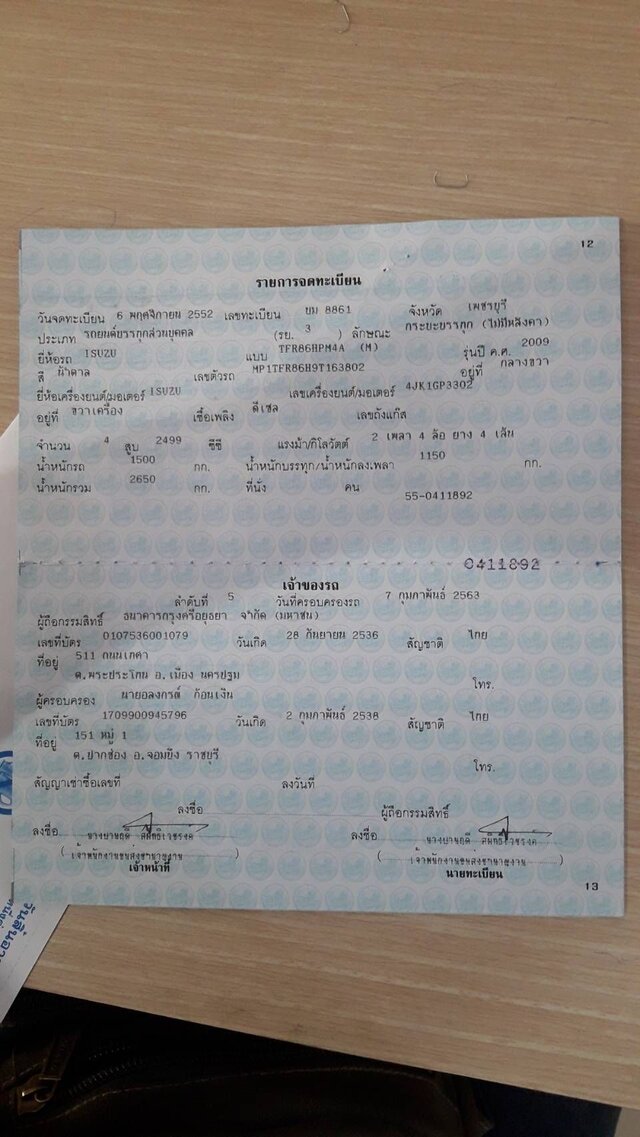 12
รายการจดทะเบียน
วันจดทะเบียน 6 พฤศจิกายน 2552 เลขทะเบียน ยม 8861 จังหวัด เพชรบุรี
ประเภท รถยนต์บรรทุกส่วนบุคคล (รย. 3 ) ลักษณะ กระบะบรรทุก (ไม่มีหลังคา)
ยี่ห้อรถ ISUZU แบบ TFR86HPM4A (M) รุ่นปี ค.ศ. 2009
สี น้ำตาล เลขตัวรถ MP1TFR86H9T163802 อยู่ที่ กลางขวา
ยี่ห้อเครื่องยนต์/มอเตอร์ ISUZU เลขเครื่องยนต์/มอเตอร์ 4JK1GP3302
อยู่ที่ ขวาเครื่อง เชื้อเพลิง ดีเซล เลขถังแก๊ส
จำนวน 4 สูบ 2499 ซีซี แรงม้า/กิโลวัตต์ 2 เพลา 4 ล้อ ยาง 4 เส้น
น้ำหนักรถ 1500 กก. น้ำหนักบรรทุก/น้ำหนักลงเพลา 1150 กก.
น้ำหนักรวม 2650 กก. ที่นั่ง คน 55-0411892
0411892
เจ้าของรถ
ลำดับที่ 5 วันที่ครอบครองรถ 7 กุมภาพันธ์ 2563
ผู้ถือกรรมสิทธิ์ ธนาคารกรุงศรีอยุธยา จำกัด (มหาชน)
เลขที่บัตร 0107536001079 วันเกิด 28 กันยายน 2536 สัญชาติ ไทย
ที่อยู่ 511 ถนนเทศา
ต.พระประโทน อ.เมือง นครปฐม โทร.
ผู้ครอบครอง นายอลงกรณ์ ก้อนเงิน
เลขที่บัตร 1709900945796 วันเกิด 2 กุมภาพันธ์ 2538 สัญชาติ ไทย
ที่อยู่ 151 หมู่ 1
ต.ปากช่อง อ.จอมบึง ราชบุรี โทร.
สัญญาเช่าซื้อเลขที่ ลงวันที่
ลงชื่อ ผู้ถือกรรมสิทธิ์
ลงชื่อ ลงชื่อ
(เจ้าพนักงานขนส่งชำนาญงาน) (เจ้าพนักงานขนส่งชำนาญงาน)
เจ้าหน้าที่ นายทะเบียน
13